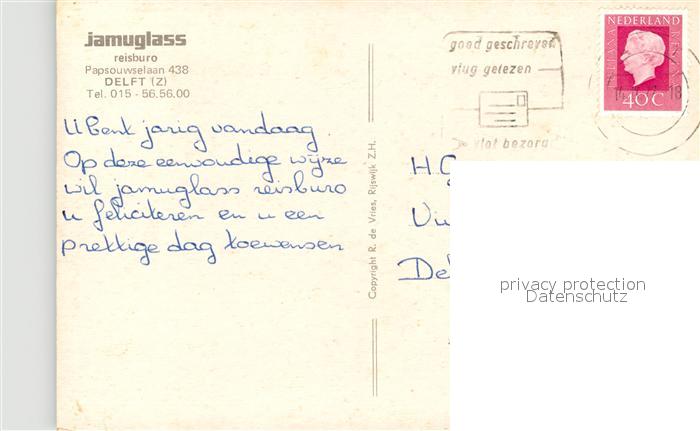 jamuglass
reisburo
Papsouwselaan 438
DELFT (Z)
Tel. 015 - 56.56.00
U bent jarig vandaag.
Op deze eenvoudige wijze
wil jamuglass reisburo
u feliciteren en u een
prettige dag toewensen
Copyright R. de Vries, Rijswijk Z.H.
goed geschreven
vlug gelezen
vlot bezorg
NEDERLAND
JULIANA REGINA
40C
18
H.
De
privacy protection
Datenschutz